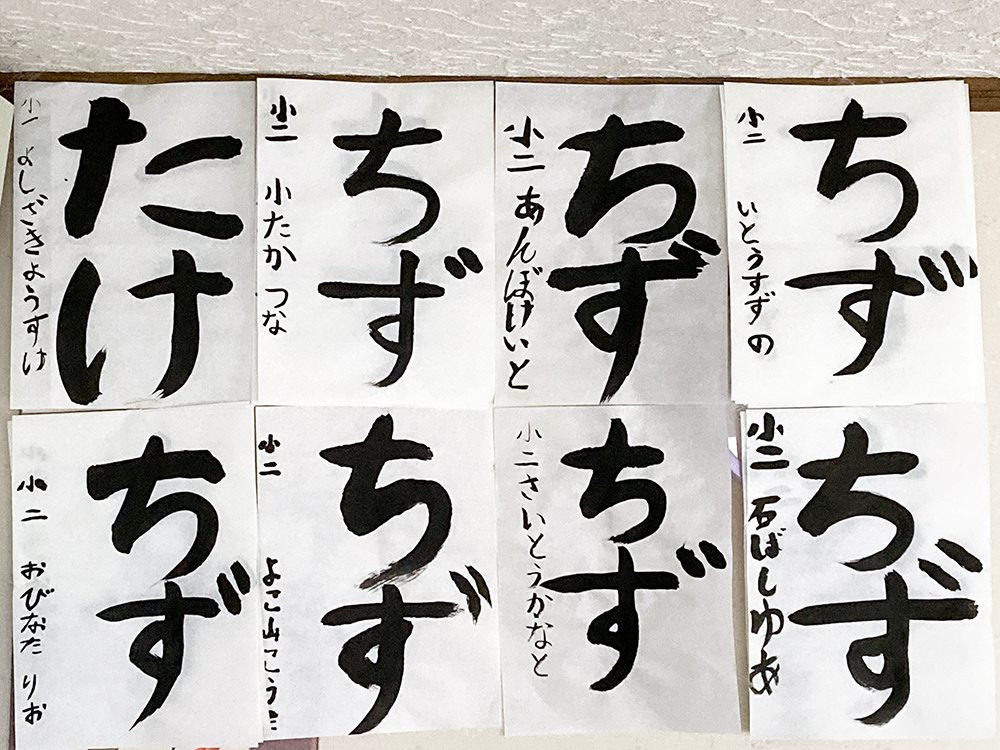 たけ
小一 よしざききょうすけ
ちず
小二 小たか つな
ちず
小二 あんぼけいと
ちず
小二 いとうすずの
ちず
小二 おびなた りお
ちず
小二 よこ山こう
ちず
小二 さいとうかなと
ちず
小二 石ばしゆあ